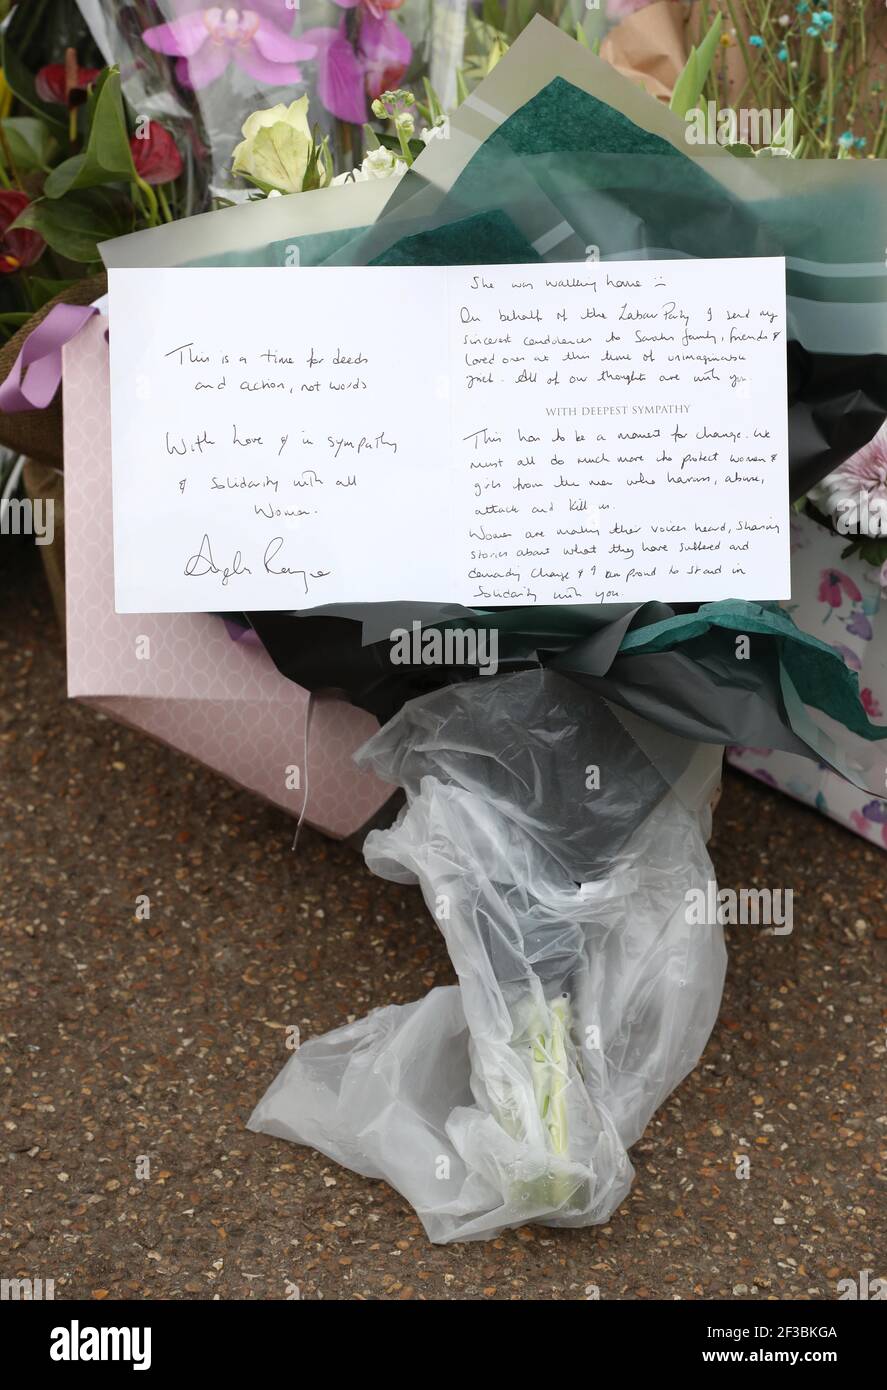 This is a time for deeds
and action, not words
With Love & in sympathy
& Solidarity with all
Women.
Angela Rayner
She was walking home :(
On behalf of the Labour Party I send my
sincerest condolences to Sarahs family, friends &
loved ones at this time of unimaginable
grief. All of our thoughts are with you.
WITH DEEPEST SYMPATHY
This has to be a moment for change. We
must all do much more to protect women &
girls from the men who harass, abuse,
attack and kill us.
Women are making their voices heard, sharing
stories about what they have suffered and
demanding change & I am proud to stand in
Solidarity with you.
alamy
Image ID: 2F3BKGA
www.alamy.com